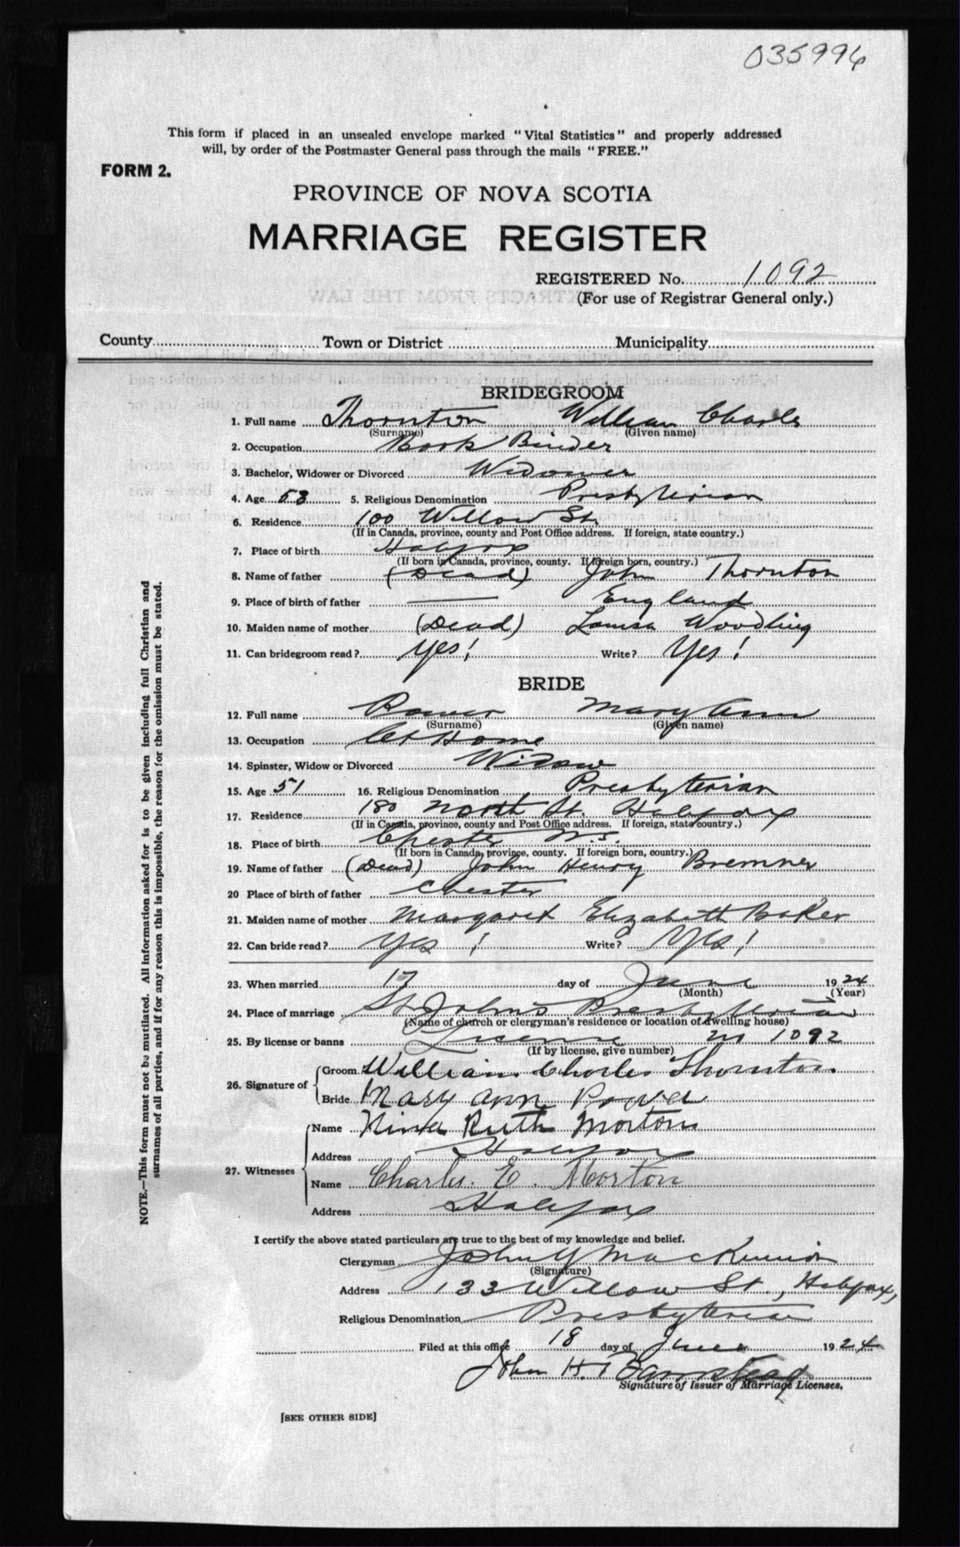 035996
This form if placed in an unsealed envelope marked "Vital Statistics" and properly addressed
will, by order of the Postmaster General pass through the mails "FREE."
FORM 2.
PROVINCE OF NOVA SCOTIA
MARRIAGE REGISTER
REGISTERED No. 1092
(For use of Registrar General only.)
County Town or District Municipality
BRIDEGROOM
1. Full name Thornton William Charles
(Surname) (Given name)
2. Occupation Book Binder
3. Bachelor, Widower or Divorced Widower
4. Age 53 5. Religious Denomination Presbyterian
6. Residence 100 Willow St.
(If in Canada, province, county and Post Office address. If foreign, state country.)
7. Place of birth Halifax
(If born in Canada, province, county. If foreign born, country.)
8. Name of father (Dead) John Thornton
9. Place of birth of father England
10. Maiden name of mother (Dead) Louisa Woodling
11. Can bridegroom read? Yes! Write? Yes!
BRIDE
12. Full name Power Mary Ann
(Surname) (Given name)
13. Occupation At Home
14. Spinster, Widow or Divorced Widow
15. Age 51 16. Religious Denomination Presbyterian
17. Residence 180 North St. Halifax
(If in Canada, province, county and Post Office address. If foreign, state country.)
18. Place of birth Chester N.S.
(If born in Canada, province, county. If foreign born, country.)
19. Name of father (Dead) John Henry Bremner
20 Place of birth of father Chester
21. Maiden name of mother Margaret Elizabeth Baker
22. Can bride read? Yes! Write? Yes!
23. When married 17 day of June 1924
(Month) (Year)
24. Place of marriage St. John's Presbyterian
(Name of church or clergyman's residence or location of dwelling house)
25. By license or banns License No 1092
(If by license, give number)
26. Signature of
Groom William Charles Thornton
Bride Mary Ann Power
27. Witnesses
Name Nina Ruth Morton
Address Halifax
Name Charles E. Morton
Address Halifax
I certify the above stated particulars are true to the best of my knowledge and belief.
Clergyman John Y MacKinnon
(Signature)
Address 133 Willow St., Halifax,
Religious Denomination Presbyterian
Filed at this office 18 day of June 1924
John H.
Signature of Issuer of Marriage Licenses.
[SEE OTHER SIDE]
NOTE.—This form must not be mutilated. All information asked for is to be given including full Christian and
surnames of all parties, and if for any reason this is impossible, the reason for the omission must be stated.